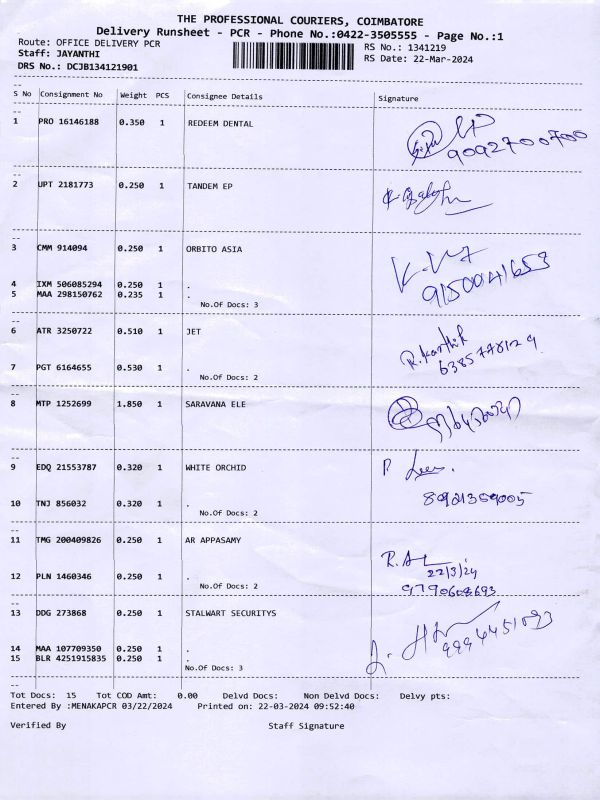 THE PROFESSIONAL COURIERS, COIMBATORE
Delivery Runsheet - PCR - Phone No.:0422-3505555 - Page No.:1
Route: OFFICE DELIVERY PCR
RS No.: 1341219
Staff: JAYANTHI
RS Date: 22-Mar-2024
DRS No.: DCJB134121901
S No Consignment No Weight PCS Consignee Details Signature
1 PRO 16146188 0.350 1 REDEEM DENTAL
9092700700
2 UPT 2181773 0.250 1 TANDEM EP
3 CMM 914094 0.250 1 ORBITO ASIA
4 IXM 506085294 0.250 1 .
9150041653
5 MAA 298150762 0.235 1 .
No.Of Docs: 3
6 ATR 3250722 0.510 1 JET
R.Karthik
7 PGT 6164655 0.530 1 .
No.Of Docs: 2
8 MTP 1252699 1.850 1 SARAVANA ELE
9 EDQ 21553787 0.320 1 WHITE ORCHID
10 TNJ 856032 0.320 1 .
8921369005
No.Of Docs: 2
11 TMG 200409826 0.250 1 AR APPASAMY
22/3/24
12 PLN 1460346 0.250 1 .
No.Of Docs: 2
9790608693
13 DDG 273868 0.250 1 STALWART SECURITYS
9994451093
14 MAA 107709350 0.250 1 .
15 BLR 4251915835 0.250 1 .
No.Of Docs: 3
Tot Docs: 15 Tot COD Amt: 0.00 Delvd Docs: Non Delvd Docs: Delvy pts:
Entered By :MENAKAPCR 03/22/2024 Printed on: 22-03-2024 09:52:40
Verified By Staff Signature